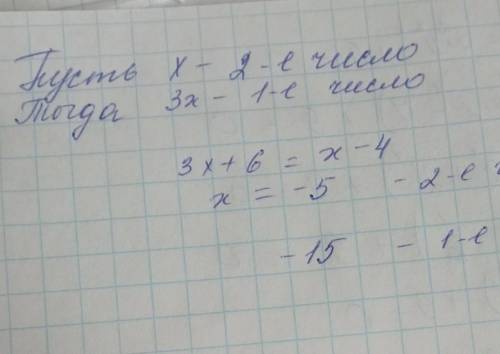 Пусть x - 2-е число
Тогда 3x - 1-е число
3x + 6 = x - 4
x = -5 - 2-е
-15 - 1-е